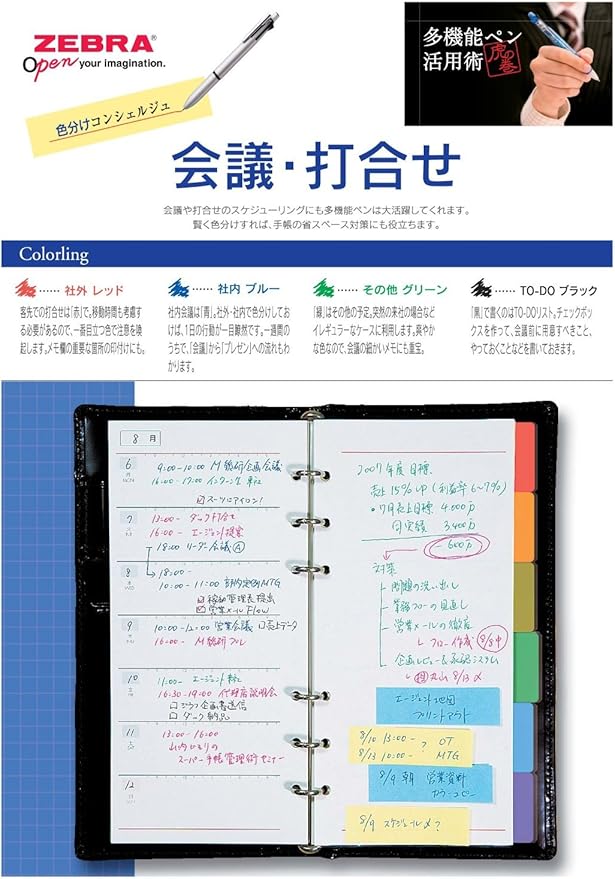 ZEBRA®
Open your imagination.
色分けコンシェルジュ
多機能ペン
活用術
虎の巻
会議・打合せ
会議や打合せのスケジューリングにも多機能ペンは大活躍してくれます。
賢く色分けすれば、手帳の省スペース対策にも役立ちます。
Colorling
…… 社外 レッド
客先での打合せは「赤」で。移動時間も考慮す
る必要があるので、一番目立つ色で注意を喚
起します。メモ欄の重要な箇所の印付けにも。
…… 社内 ブルー
社内会議は「青」。社外・社内で色分けしてお
けば、1日の行動が一目瞭然です。一週間の
うちで、「会議」から「プレゼン」への流れもわ
かります。
…… その他 グリーン
「緑」はその他の予定。突然の来社の場合など
イレギュラーなケースに利用します。爽やか
な色なので、会議の細かいメモにも重宝。
…… TO-DO ブラック
「黒」で書くのはTO-DOリスト。チェックボッ
クスを作って、会議前に用意すべきこと、
やっておくことなどを書いておきます。
8 月
6 9:00-10:00 M総研企画会議
MON 16:00-17:00 インターン生 来社
☑スーツにアイロン!
7 13:00- ダック打合せ
16:00- エージェント提案
18:00 リーダー会議Ⓐ
8 →18:00-
10:00-11:00 部内定例MTG
☑移動管理表提出
☑営業メールFlow
9 10:00-12:00 営業会議 □売上データ
16:00- M総研プレ
10 11:00- エージェント来社
16:30-19:00 代理店説明会
□企画書送信
□ダック納品
11 13:00-16:00
山内ひもりの
スーパー手帳管理術セミナー
12
2007年度目標
売上15%up(利益率6~7%)
・7月売上目標 4,000p
同実績 3,400p
-600p
対策
問題の洗い出し
業務フローの見直し
営業メールの徹底
フロー作成 8/8中
企画レビュー&承認システム
丸山 8/13〆
エージェント地図
プリントアウト
8/10 13:00-? OT
8/13 10:00- MTG
8/9 朝 営業資料
カラーコピー
8/9 スケジュール〆?